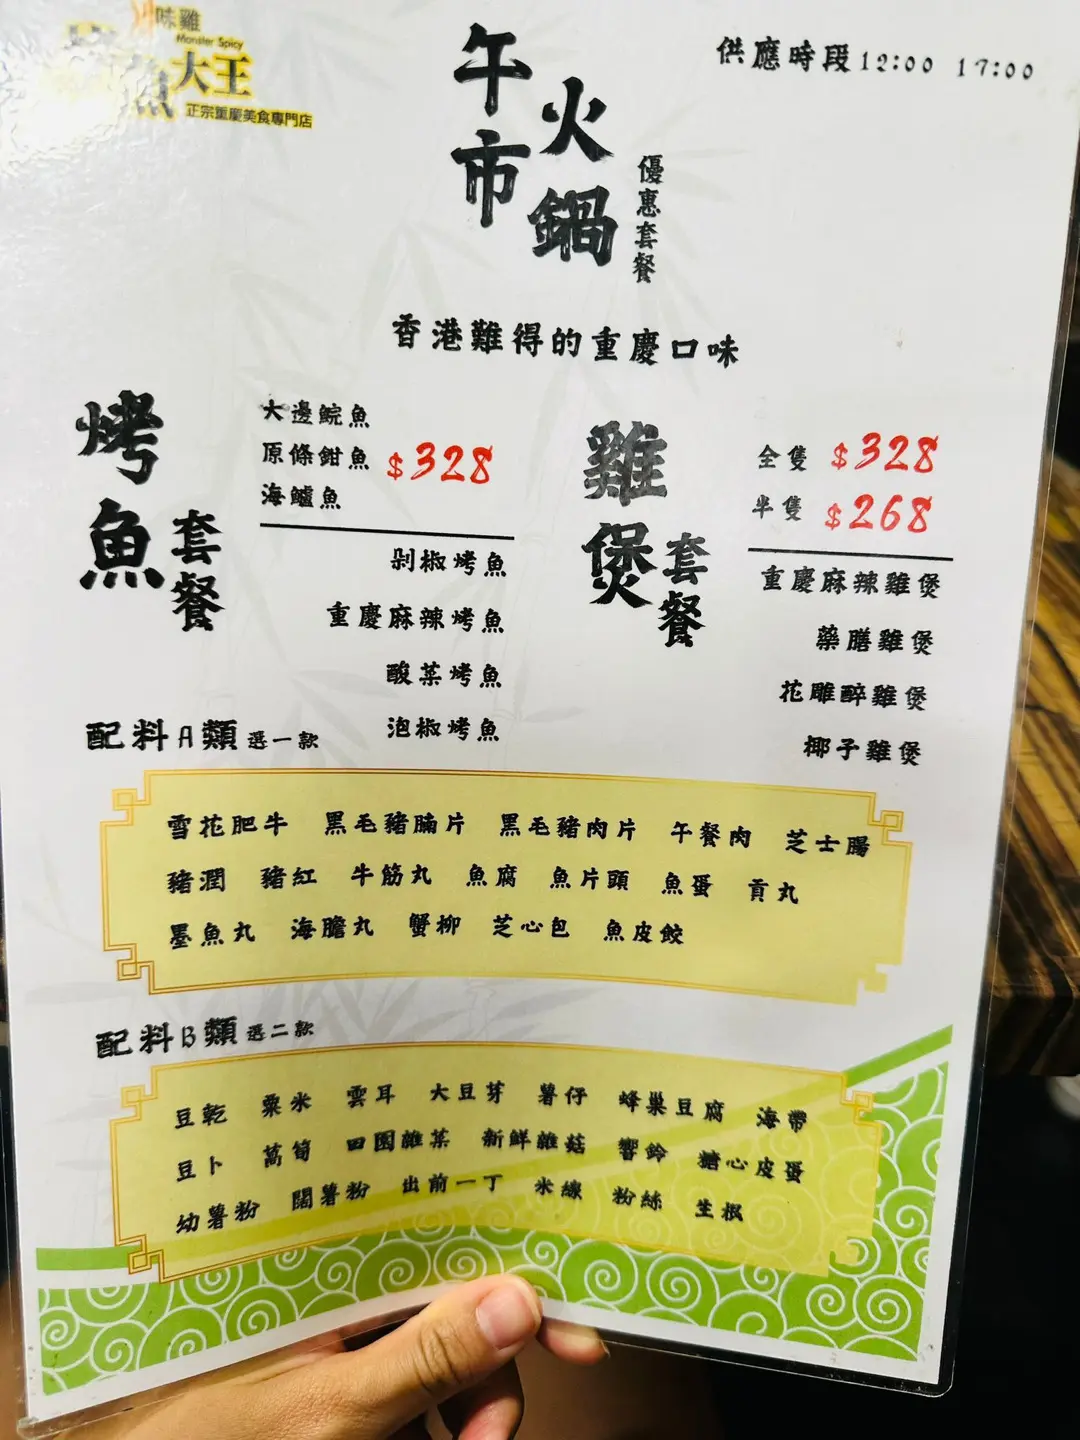 味雞
Monster Spicy
魚大王
正宗重慶美食專門店
供應時段12:00 17:00
午市
火鍋
優惠套餐
香港難得的重慶口味
烤魚
套餐
大邊鯇魚
原條鉗魚
海鱸魚
$328
剁椒烤魚
重慶麻辣烤魚
酸菜烤魚
泡椒烤魚
雞煲
套餐
全隻 $328
半隻 $268
重慶麻辣雞煲
藥膳雞煲
花雕醉雞煲
椰子雞煲
配料A類 選一款
雪花肥牛 黑毛豬腩片 黑毛豬肉片 午餐肉 芝士腸
豬潤 豬紅 牛筋丸 魚腐 魚片頭 魚蛋 貢丸
墨魚丸 海膽丸 蟹柳 芝心包 魚皮餃
配料B類 選二款
豆乾 粟米 雲耳 大豆芽 薯仔 蜂巢豆腐 海帶
豆卜 萵筍 田園雜菜 新鮮雜菇 響鈴 糖心皮蛋
幼薯粉 闊薯粉 出前一丁 米線 粉絲 生根